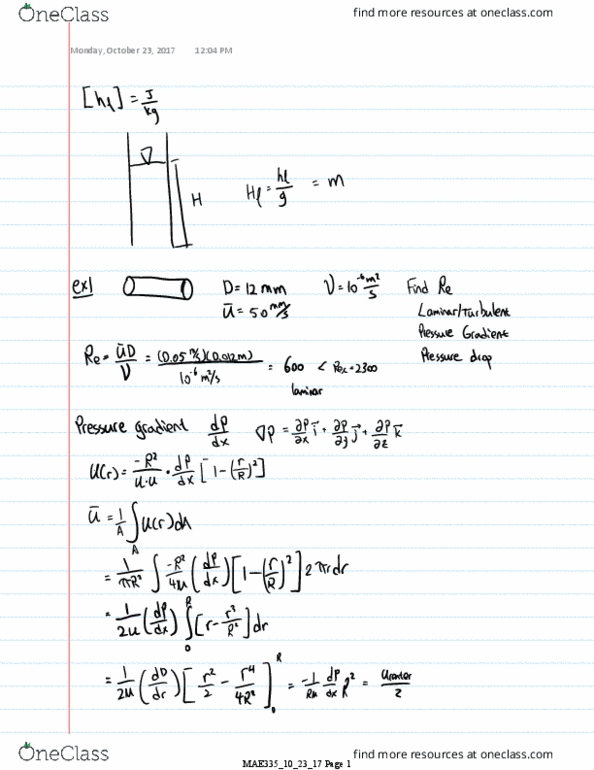 OneClass
find more resources at oneclass.com
Monday, October 23, 2017 12:04 PM
[hl] = J/kg
H
Hl = hl/g = m
ex1
D = 12 mm
ν = 10^-6 m²/s
Find Re
ū = 50 mm/s
Laminar/Turbulent
Pressure Gradient
Pressure drop
Re = ūD/ν = (0.05 m/s)(0.012m)/10^-6 m²/s = 600 < Rex = 2300
laminar
Pressure gradient dP/dx ∇P = ∂P/∂x i + ∂P/∂y j + ∂P/∂z k
u(r) = -R²/u·u · dP/dx [1-(r/R)²]
ū = 1/A ∫A u(r)dA
= 1/πR² ∫ -R²/4u (dP/dx)[1-(r/R)²] 2πrdr
= 1/2u (dP/dx) ∫0^R [r - r³/R²]dr
= 1/2u (dP/dr)[r²/2 - r⁴/4R²]0^R = -1/8u dP/dx R² = ucenter/2
OneClass
find more resources at oneclass.com
MAE335_10_23_17 Page 1